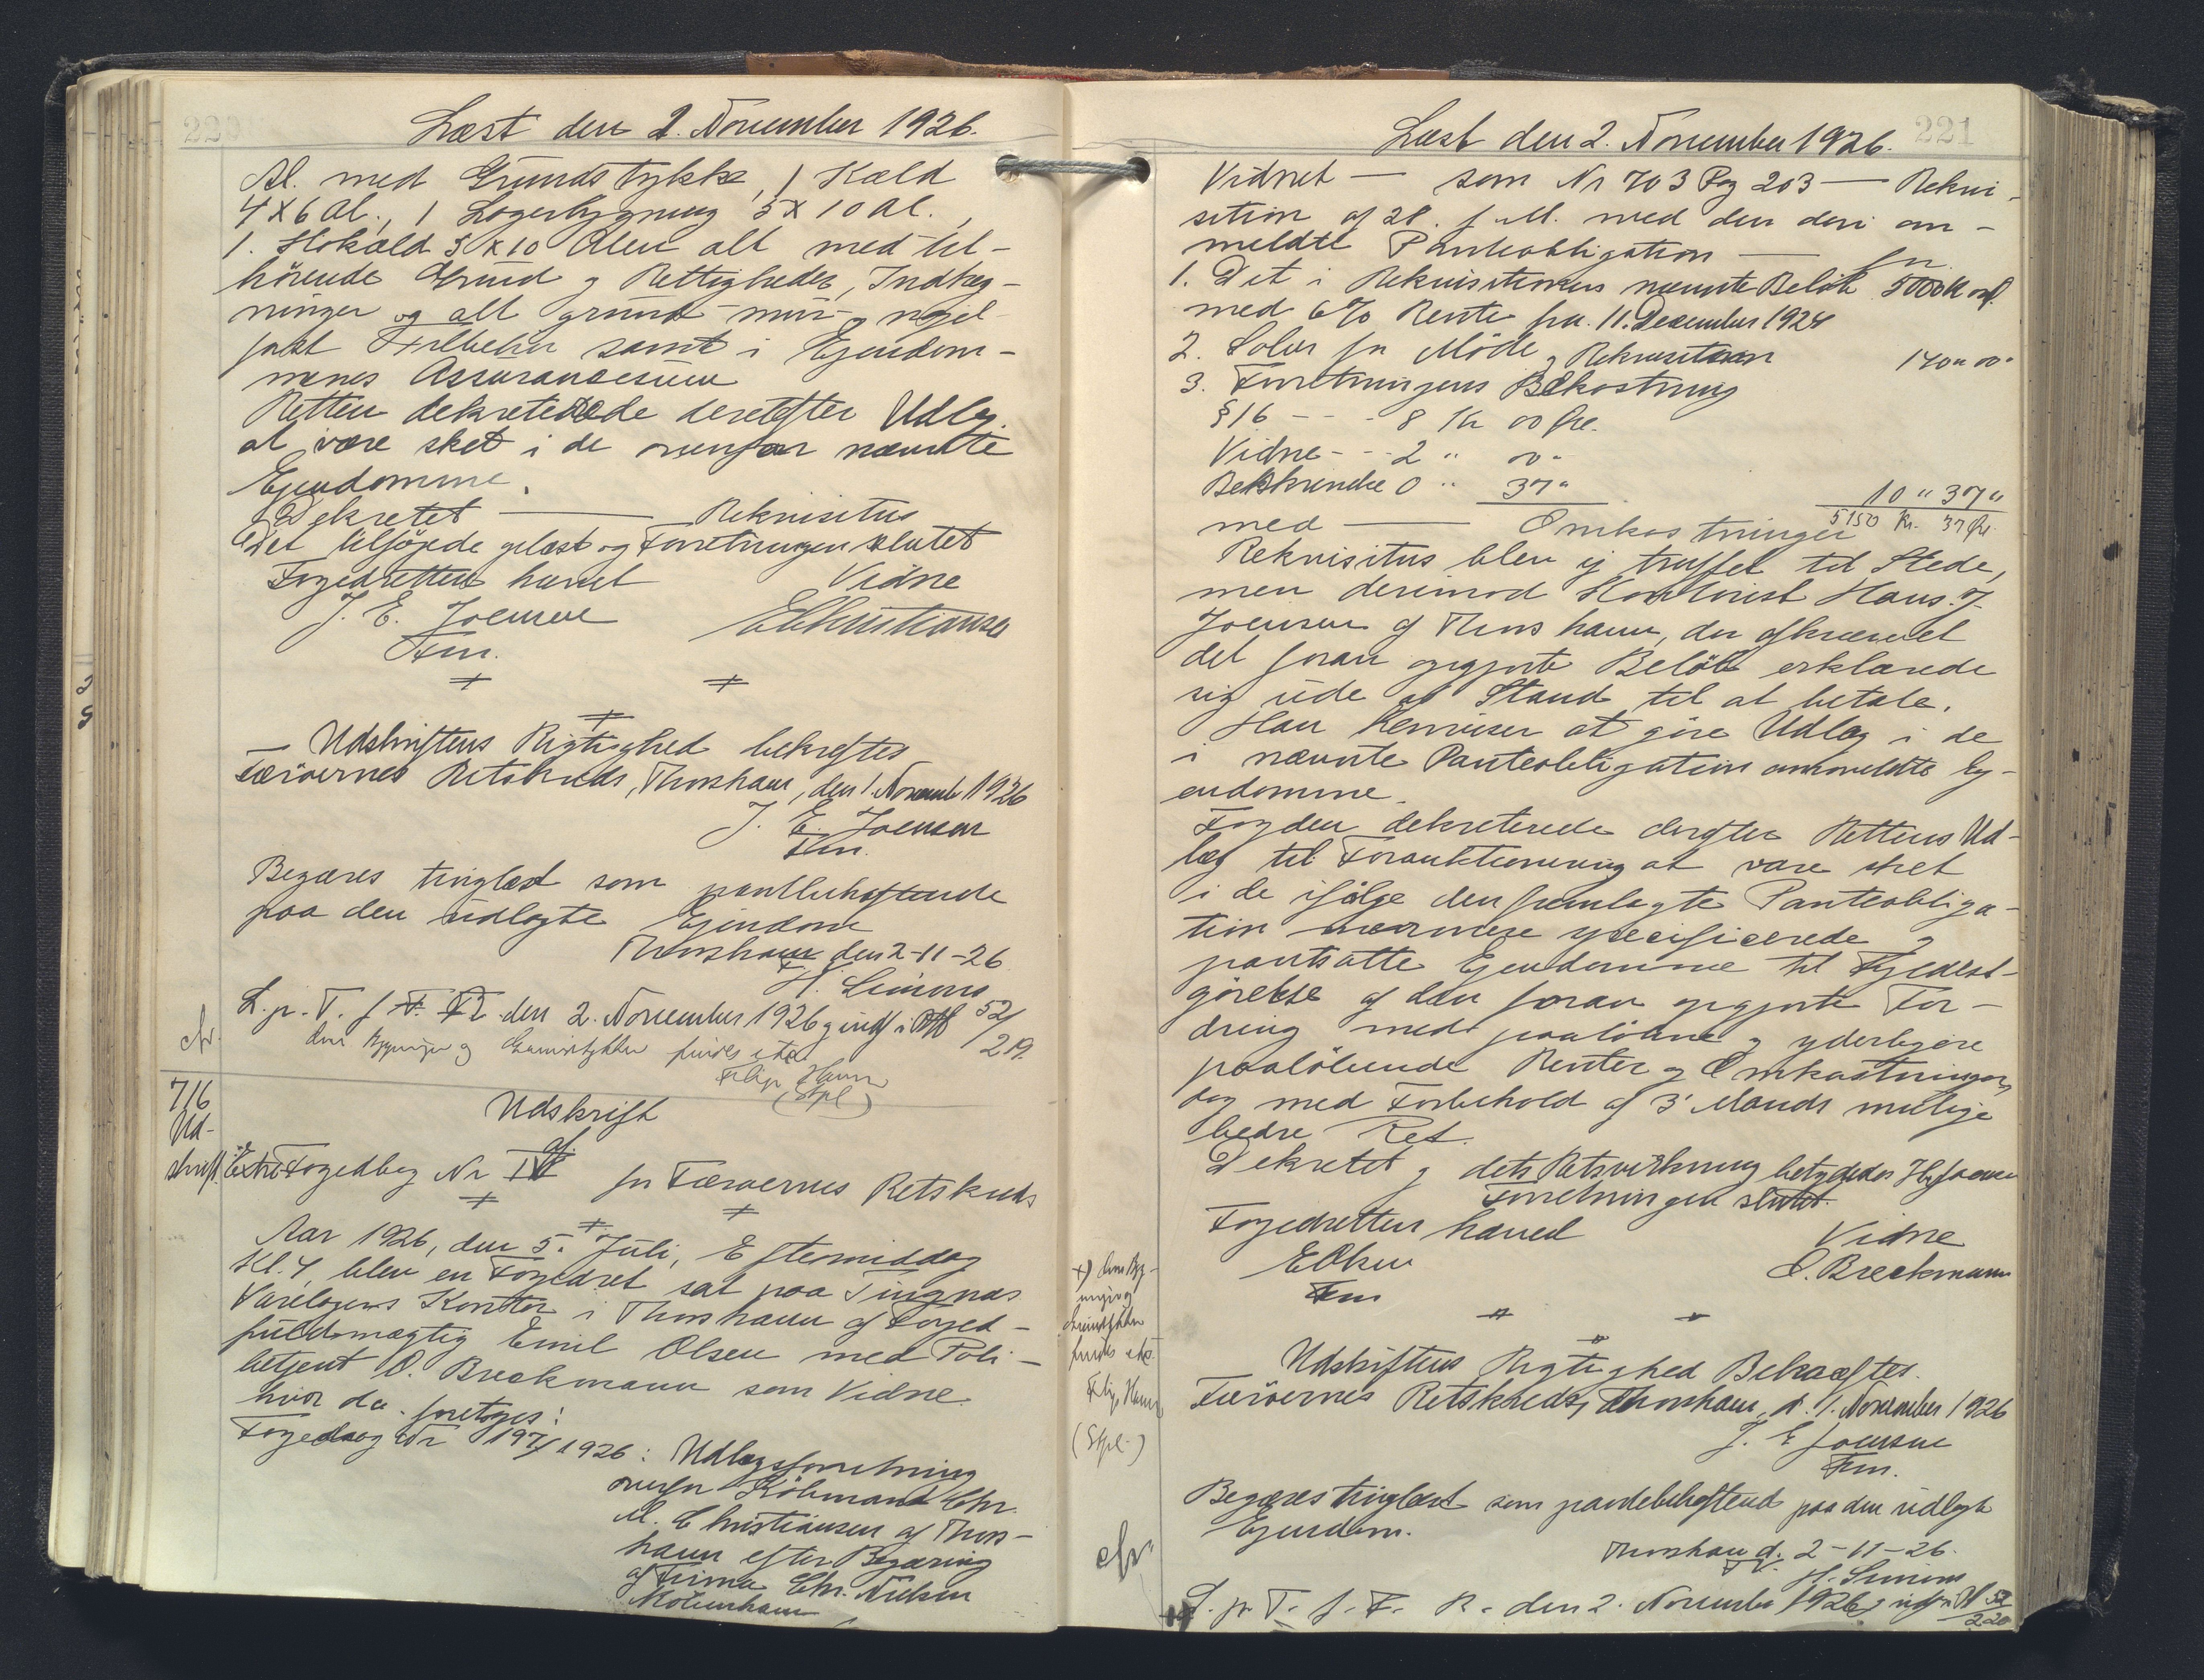 220
Læst den 2. November 1926.
Al. med Grundstykke, 1 Kæld
4 x 6 Al., 1 Lagerbygning 5 x 10 Al.,
1. Hokæld 5 x 10 Alen alt med til-
hörende Grund og Rettigheder, Indheg-
ninger og alt grund- mur- og nagel-
fast Tilbehör samt i Ejendom-
menes Assurancesum
Retten dekreterede derefter Udlæg
at være sket i de ovenfor nævnte
Ejendomme.
Dekretet — Rekvisitus
Det tilföjede oplæst og Forretningen sluttet
Fogedretten hævet
Vidne
J. E. Joensen
E Christiansen
Fm.
Udskriftens Rigtighed bekræftes
Færöernes Retskreds, Thorshavn, den 1. Novemb 1926
J. E. Joensen
Fm.
Begæres tinglæst som pantbehæftende
paa den udlagte Ejendom
Thorshavn den 2-11-26
H. Simons
L. p. T. f. F. R. den 2. November 1926 og indf. i 52/219.
cfr.
dem Bygninger og Grundstykker findes
(Stpl)
716
Ud-
skrift
Udskrift
af
Extra Fogedbog Nr for Færöernes Retskreds
Aar 1926, den 5. Juli, Eftermiddag
Kl. 4, blev en Fogedret sat paa Tingnæs
Varelagers Kontor i Thorshavn af Foged-
fuldmægtig Emil Olsen med Poli-
betjent O. Breckmann som Vidne.
hvor da foretoges:
Fogedsag Nr 197/1926: Udlægsforretning
over Köbmand Chr.
M. Christiansen af Thors-
havn efter Begæring
af Firma Chr. Nielsen
Köbenhavn
221
Læst den 2. November 1926.
Vidnet — som Nr 703 Pag 203 — Rekvi-
sition af 28. f. M. med den deri an-
meldte Panteobligation — for
1. Det i Rekvisitionen nævnte Belöb 5000 Kr
med 6% Rente fra 11. December 1924
2. Salær for Möde og Rekvisition 140 " 00 "
3. Forretningens Bekostning
§ 16 - - - 8 Kr 00 Öre.
Vidne - - - 2 " 00 "
Beskrivelse 0 " 37 " 10 " 37 "
med — Omkostninger 5150 Kr. 37 Öre.
Rekvisitus blev ej truffet til Stede,
men derimod Kontorist Hans J.
Joensen af Thorshavn, der afkrævet
det foran opgjorte Belöb erklærede
sig ude af Stand til at betale.
Han henviser at göre Udlæg i de
i nævnte Panteobligation anmeldte Ej-
endomme.
Fogden dekreterede derefter Rettens Ud-
læg til Forauktionering at være sket
i de ifölge den fremlagte Panteobliga-
tion nærmere specificerede og
pantsatte Ejendomme til Fyldest-
görelse af den foran opgjorte For-
dring med paalöbne og yderligere
paalöbende Renter og Omkostninger,
dog med Forbehold af 3' Mands mulige
bedre Ret.
Dekretet og dets Retsvirkning betydedes H. J. Joensen
Forretningen sluttet.
Fogedretten hævet
Vidne
E Olsen
O. Breckmann
Fm
+) dem Byg-
ninger og
Grundstykker
findes
(Stpl.)
Udskriftens Rigtighed Bekræftes.
Færöernes Retskreds, Thorshavn, d. 1. November 1926
J. E Joensen
Fm.
Begæres tinglæst som pantebehæftend paa den udlagte
Ejendom.
Thorshavn d. 2-11-26.
H. Simons
cfr.
L. p. T. f. F. R. den 2. November 1926 og indf. i 52/220